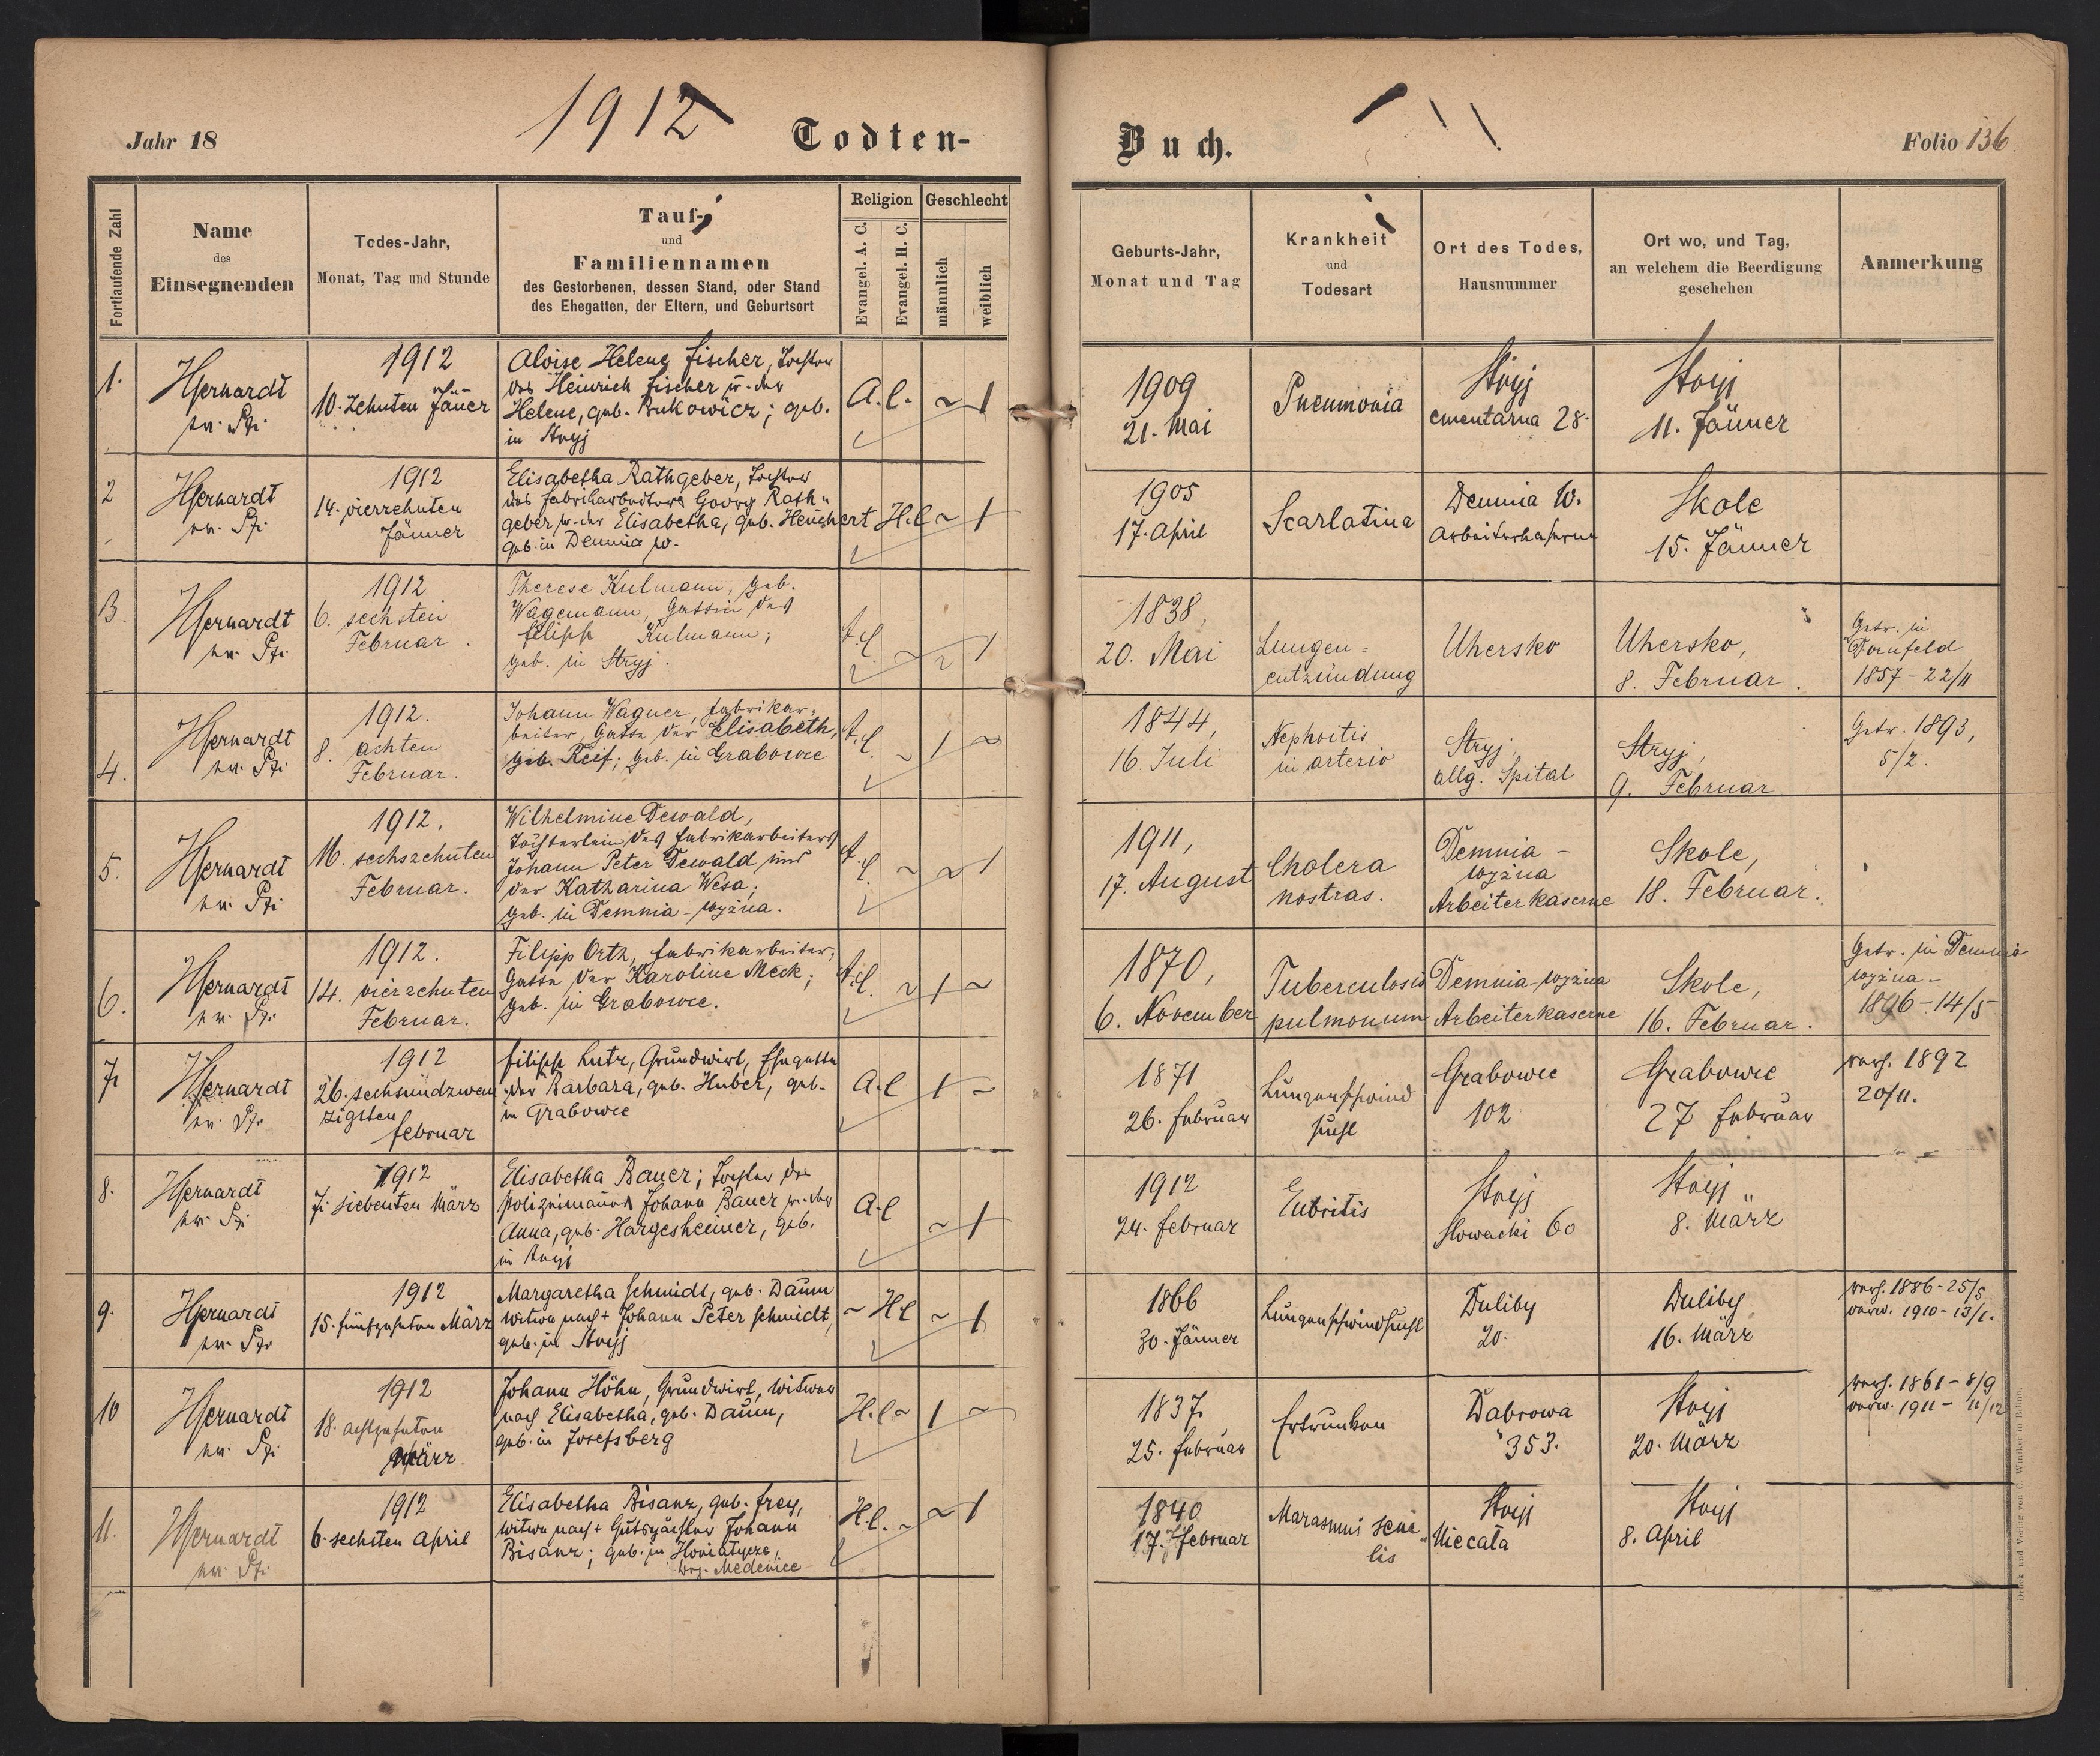 Jahr 18
1912
Todten-
Buch.
Folio 136.
Fortlaufende Zahl
Name
des
Einsegnenden
Todes-Jahr,
Monat, Tag und Stunde
Tauf-
und
Familiennamen
des Gestorbenen, dessen Stand, oder Stand
des Ehegatten, der Eltern, und Geburtsort
Religion
Evangel. A. C.
Evangel. H. C.
Geschlecht
männlich
weiblich
Geburts-Jahr,
Monat und Tag
Krankheit
und
Todesart
Ort des Todes,
Hausnummer
Ort wo, und Tag,
an welchem die Beerdigung
geschehen
Anmerkung
1.
1912
10. Zehnten Jäner
Aloise Helene Fischer, Tochter
des Heinrich Fischer u. der
Helene, geb. Bukowicz; geb.
in Stryj
A.C. ~ 1
1909
21. Mai
Pneumonia
Stryj
cmentarna 28.
Stryj
11. Jänner
2
1912
14. vierzehnten
Jänner
Elisabetha Rathgeber, Tochter
des Fabrikarbeiters Georg Rath-
geber u. der Elisabetha, geb. Heuchert
geb. in Demnia w.
H.C. ~ 1
1905
17. April
Scarlatina
Demnia W.
Arbeiterkaserne
Skole
15. Jänner
3.
1912
6. sechsten
Februar.
Therese Kulmann, geb.
Wagemann, Gattin des
Filipp Kulmann;
geb. in Stryj.
A.C. ~ ~ 1
1838,
20. Mai
Lungen=
entzündung
Uhersko
Uhersko,
8. Februar.
Getr. in
Dornfeld
1857 - 22/11
4.
1912.
8. achten
Februar.
Johann Wagner, Fabrikar-
beiter, Gatte der Elisabeth,
geb. Reif; geb. in Grabowce
A.C. ~ 1 ~
1844,
16. Juli
Nephritis
in arterio
Stryj,
allg. Spital
Stryj,
9. Februar
Getr. 1893,
5/2.
5.
1912.
16. sechszehnten
Februar.
Wilhelmine Dewald,
Töchterlein des Fabrikarbeiters
Johann Peter Dewald und
der Katharina Wesa;
geb. in Demnia-wyżna.
A.C. ~ ~ 1
1911,
17. August
Cholera
nostras.
Demnia -
wyżna
Arbeiterkaserne
Skole,
18. Februar.
6.
1912.
14. vierzehnten
Februar.
Filipp Orth, Fabrikarbeiter,
Gatte der Karoline Meck;
geb. in Grabowce.
A.C. ~ 1 ~
1870,
6. November
Tuberculosis
pulmonum
Demnia-wyżna
Arbeiterkaserne
Skole,
16. Februar.
Getr. in Demnia
wyżna -
1896 - 14/5
7.
1912
26. sechsundzwan
zigsten
Februar
Filipp Lutz, Grundwirt, Ehegatte
der Barbara, geb. Huber, geb.
in Grabowce
A.C 1 ~
1871
26. Februar
Lungenschwind
sucht
Grabowce
102
Grabowce
27 Februar
verh. 1892
20/11.
8.
1912
7. siebenten März
Elisabetha Bauer; Tochter des
Polizeimanns Johann Bauer u. der
Anna, geb. Hargesheimer, geb.
in Stryj
A.C ~ 1
1912
24. Februar
Stryj
Slowacki 60
Stryj
8. März
9.
1912
15. fünfzehnten März
Margaretha Schmidt, geb. Daum
Witwe nach + Johann Peter Schmidt,
geb. in Stryj
~ H.C ~ 1
1866
30. Jänner
Lungenschwindsucht
Duliby
20.
Duliby
16. März
verh. 1886 - 25/5
verw. 1910 - 13/1.
10
1912
18. achtzehnten
März
Johann Höhn, Grundwirt, Witwer
nach Elisabetha, geb. Daum,
geb. in Josefsberg
H.C ~ 1 ~
1837
25. Februar
Ertrunken
Dabrowa
353.
Stryj
20. März
verh. 1861 - 8/9
verw. 1911 - 11/12
11.
1912
6. sechsten April
Elisabetha Bisanz, geb. Frey,
Witwe nach + Gutspächter Johann
Bisanz; geb. in Horiatycze,
bez. Medenice
H.C. ~ ~ 1
1840
17. Februar
Marasmus seni
lis
Stryj
Niecała
Stryj
8. April
Druck und Verlag von C. Winiker in Brünn.